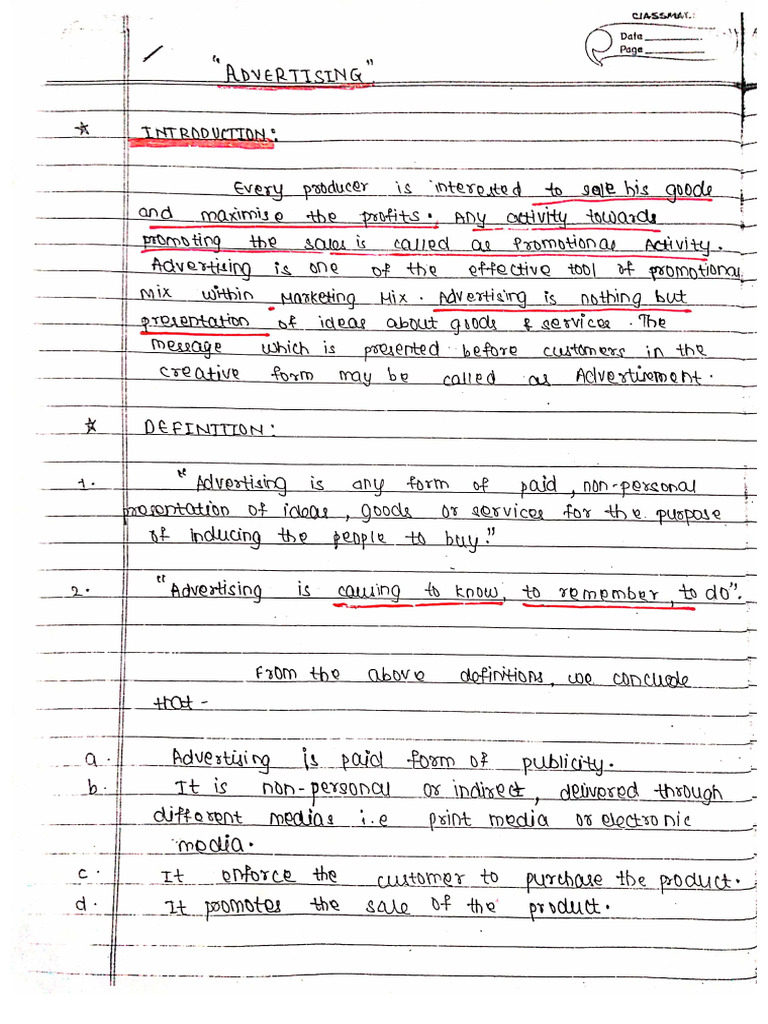 CLASSMATE
Date
Page
"ADVERTISING"
☆ INTRODUCTION:
Every producer is interested to sale his goods
and maximise the profits. Any activity towards
promoting the sales is called as Promotional Activity.
Advertising is one of the effective tool of promotional
Mix within Marketing Mix. Advertising is nothing but
presentation of ideas about goods & services. The
message which is presented before customers in the
creative form may be called as Advertisement.
☆ DEFINITION:
1. "Advertising is any form of paid, non-personal
presentation of ideas, goods or services for the purpose
of inducing the people to buy."
2. "Advertising is causing to know, to remember, to do".
From the above definitions, we conclude
that -
a. Advertising is paid form of publicity.
b. It is non-personal or indirect, delivered through
different medias i.e print media or electronic
media.
c. It enforce the customer to purchase the product.
d. It promotes the sale of the product.